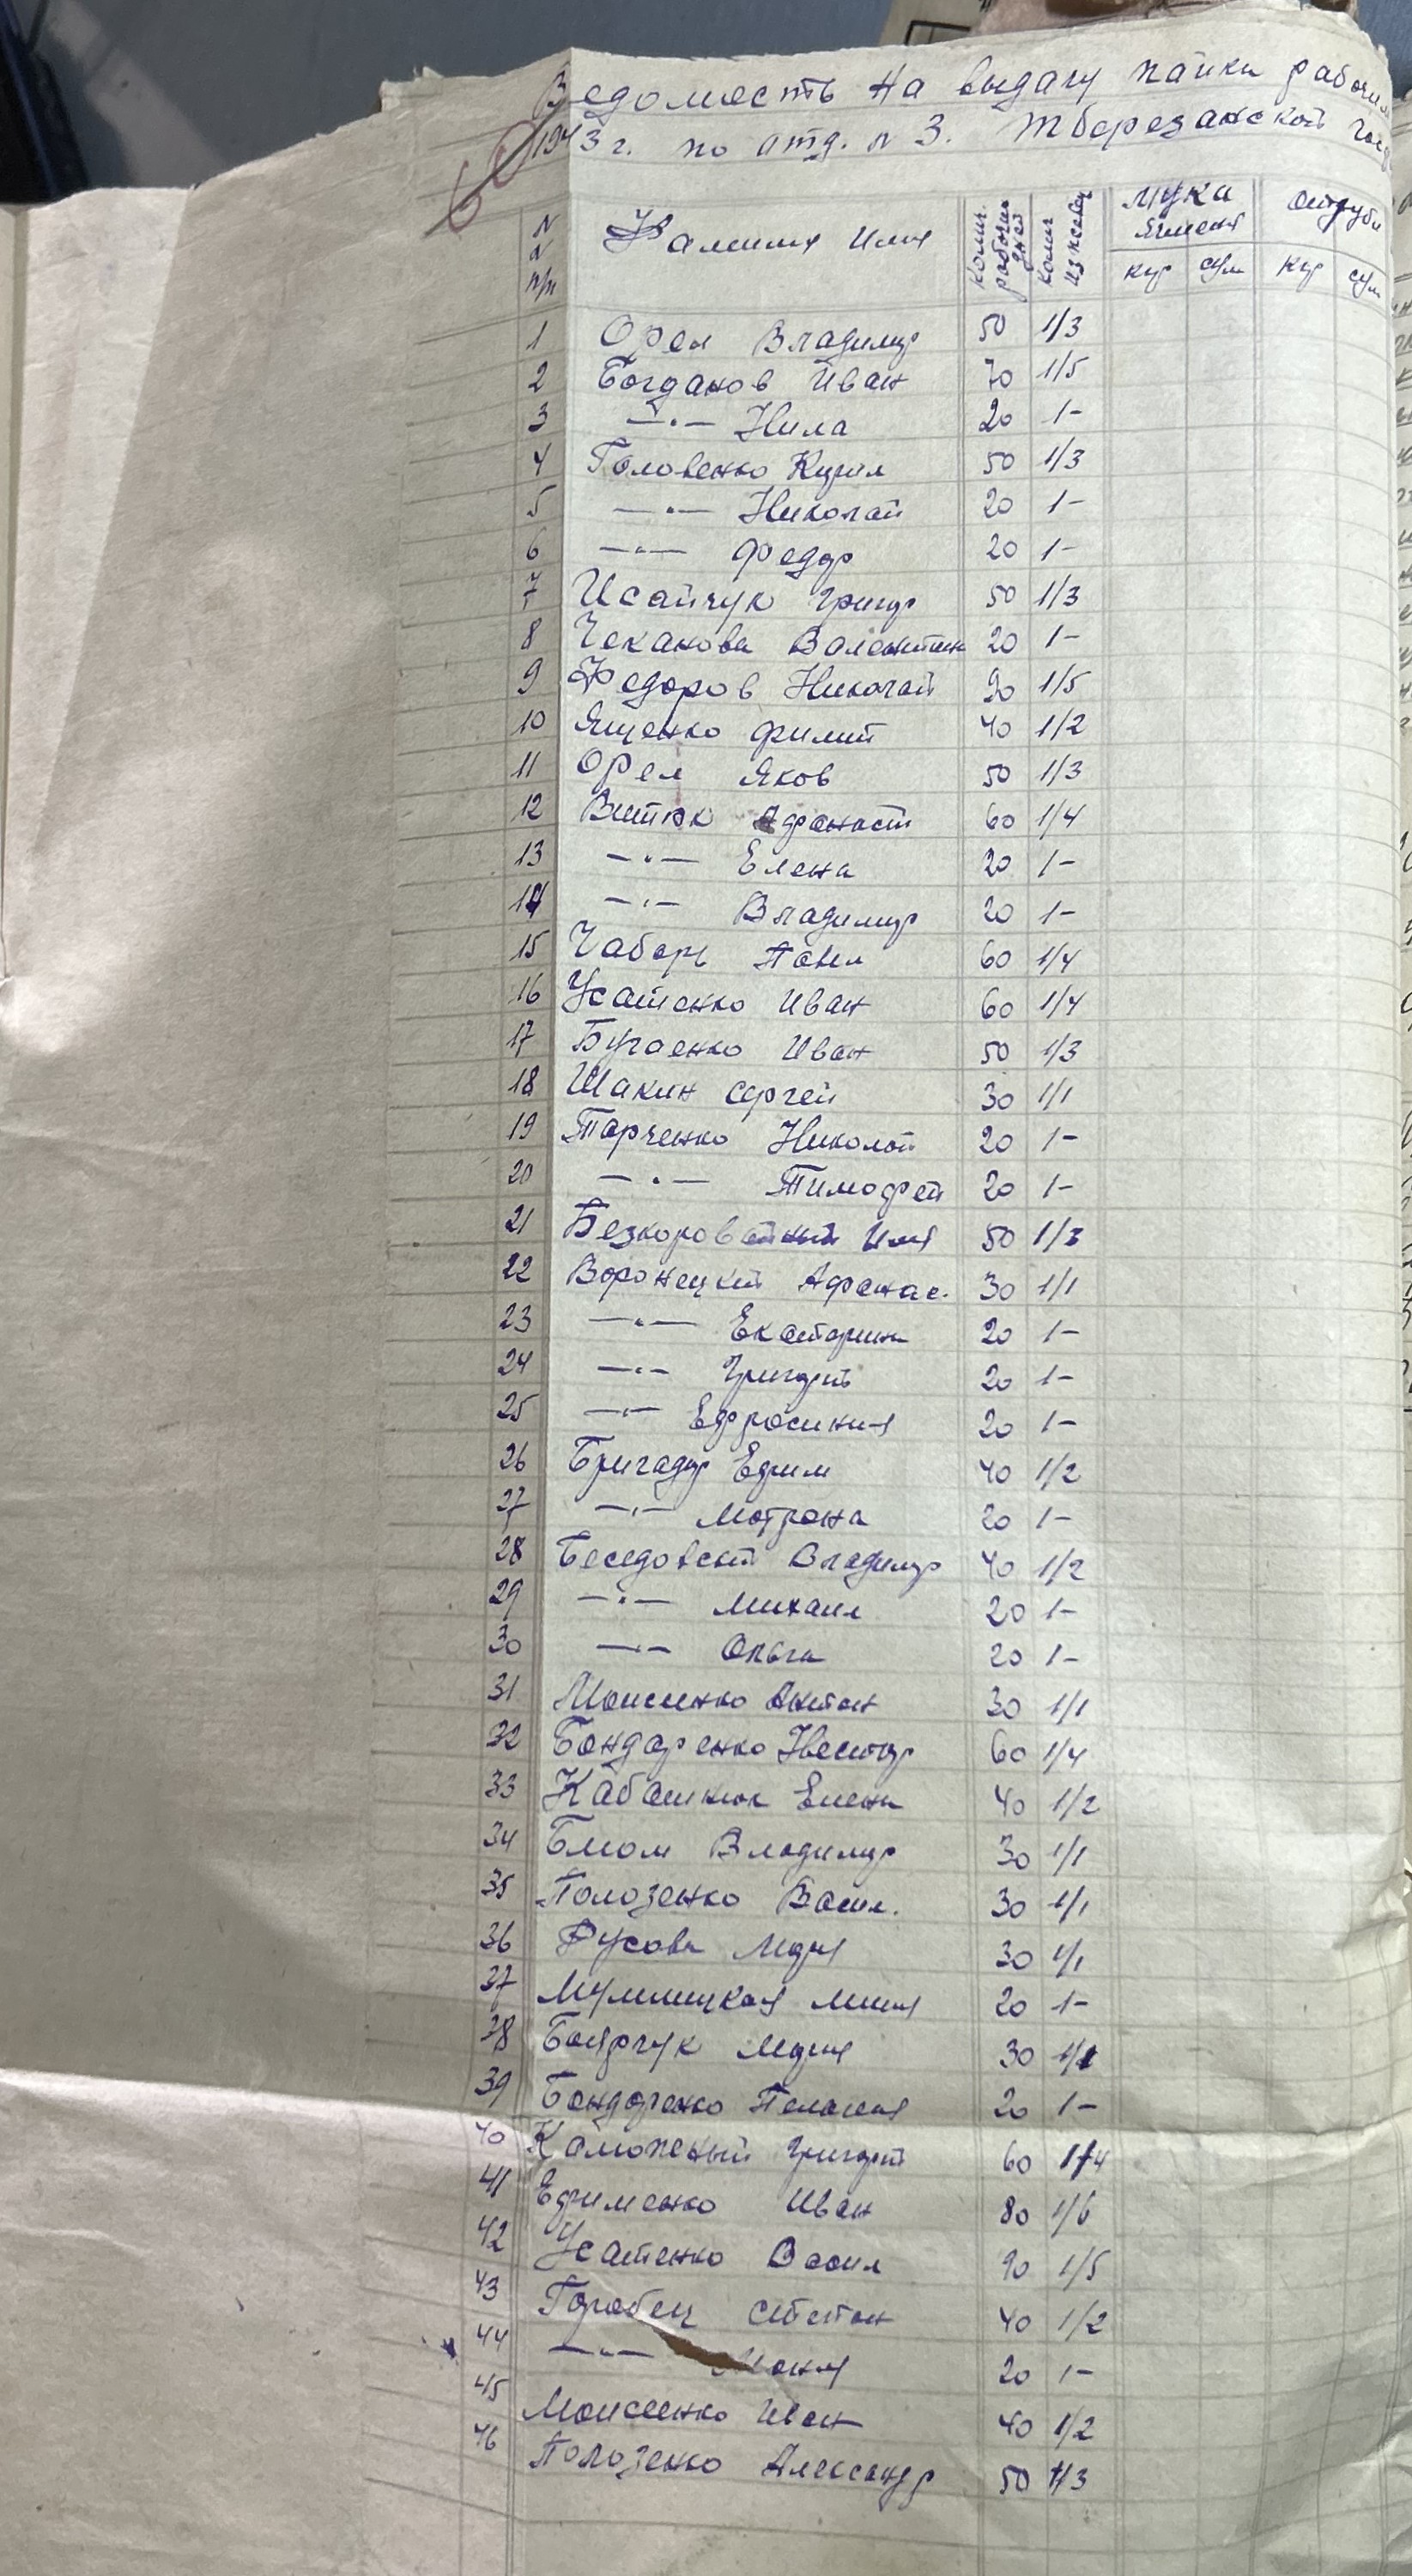 Ведомость на выдачу пайки рабочим
1943 г. по отд. N 3. Тберезанской
N N п/п Фамилия Имя Колич. рабочих дней Колич иждевен Мука Ячменя Отруби
кгр сум кгр сум
1 Орел Владимир 50 1/3
2 Богданов Иван 70 1/5
3 —"— Нила 20 1-
4 Головенко Кирил 50 1/3
5 —"— Николай 20 1-
6 —"— Федор 20 1-
7 Исайчук Григор 50 1/3
8 Чеканова Валентин 20 1-
9 Федоров Николай 90 1/5
10 Ященко Филип 40 1/2
11 Орел Яков 50 1/3
12 Витюк Афанасий 60 1/4
13 —"— Елена 20 1-
14 —"— Владимир 20 1-
15 Чаборь Павел 60 1/4
16 Усатенко Иван 60 1/4
17 Бугаенко Иван 50 1/3
18 Шакин Сергей 30 1/1
19 Тарченко Николай 20 1-
20 —"— Тимофей 20 1-
21 Безкоровайный Илия 50 1/3
22 Воронецкий Афанас. 30 1/1
23 —"— Екатерина 20 1-
24 —"— Григорий 20 1-
25 —"— Ефросиния 20 1-
26 Бригадир Ефим 40 1/2
27 —"— Мотрона 20 1-
28 Беседовский Владимир 40 1/2
29 —"— Михаил 20 1-
30 —"— Ольга 20 1-
31 Моисеенко Антон 30 1/1
32 Бондаренко Нестор 60 1/4
33 Кабашнюк Елена 40 1/2
34 Блюм Владимир 30 1/1
35 Полозенко Васил. 30 1/1
36 Русова Мария 30 1/1
37 20 1-
38 Боярчук Мария 30 1/1
39 Бондаренко Пелагия 20 1-
40 Каможный Григорий 60 1/4
41 Ефименко Иван 80 1/6
42 Усатенко Васил 90 1/5
43 Горобец Степан 40 1/2
44 —"— 20 1-
45 Моисеенко Иван 40 1/2
46 Полозенко Александр 50 1/3